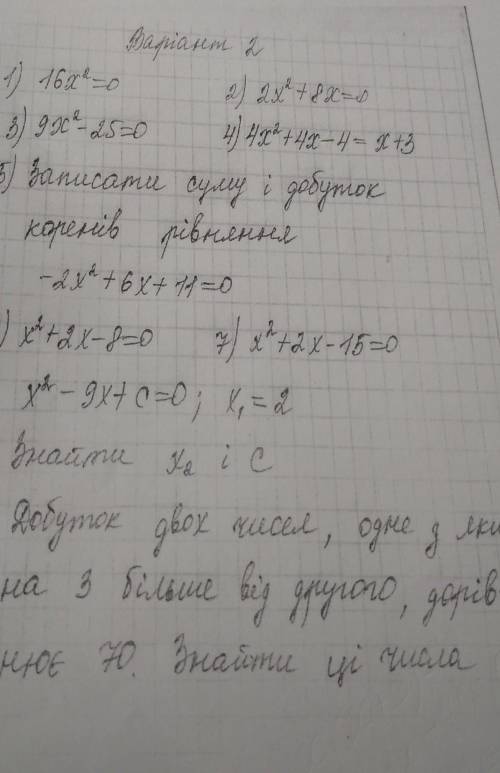 Варіант 2
1) 16x²=0
2) 2x²+8x=0
3) 9x²-25=0
4) 4x²+4x-4=x+3
5) Записати суму і добуток
коренів рівняння
-2x²+6x+11=0
) x²+2x-8=0
7) x²+2x-15=0
x²-9x+c=0; x₁=2
Знайти x₂ і c
Добуток двох чисел, одне з яки
на 3 більше від другого, дорів-
нює 70. Знайти ці числа